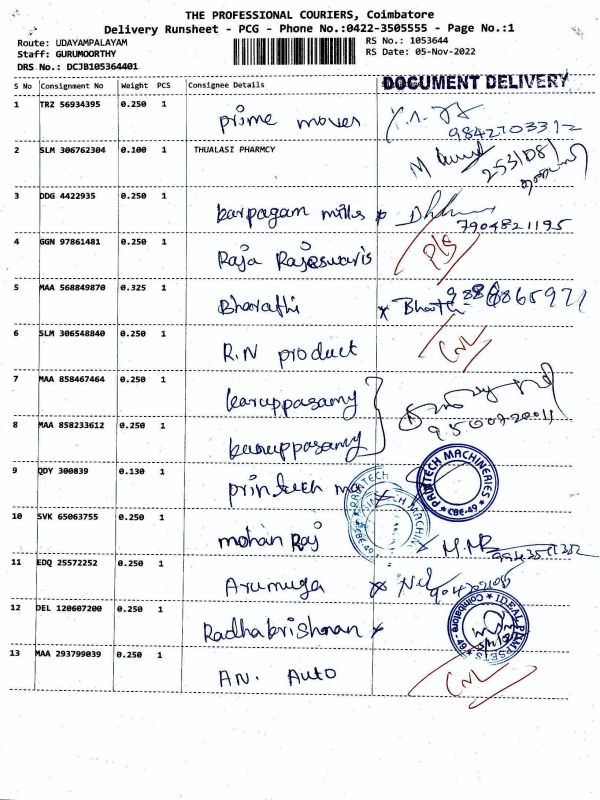 THE PROFESSIONAL COURIERS, Coimbatore
Delivery Runsheet - PCG - Phone No.:0422-3505555 - Page No.:1
Route: UDAYAMPALAYAM
RS No.: 1053644
Staff: GURUMOORTHY
RS Date: 05-Nov-2022
DRS No.: DCJB105364401
DOCUMENT DELIVERY
S No Consignment No Weight PCS Consignee Details
1 TRZ 56934395 0.250 1 prime mover
9842703312
2 SLM 306762304 0.100 1 THUALASI PHARMCY
3 DDG 4422935 0.250 1 karpagam mills
7904821195
4 GGN 97861481 0.250 1 Raja Rajeswaris
5 MAA 568849870 0.325 1 Bharathi
6 SLM 306548840 0.250 1 R.N product
7 MAA 858467464 0.250 1 karuppasamy
8 MAA 858233612 0.250 1 karuppasamy
9 QDY 300839 0.130 1 printech
PRINTECH MACHINERIES * CBE-49 *
10 SVK 65063755 0.250 1 mohan Raj
11 EDQ 25572252 0.250 1 Arumuga
12 DEL 120607200 0.250 1 Radhakrishnan
13 MAA 293799039 0.250 1 AN. AUTO